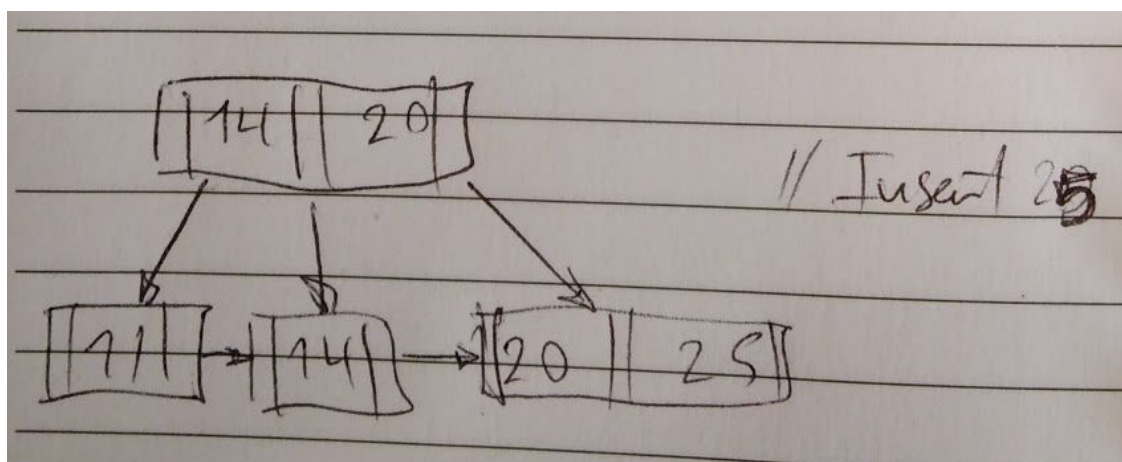 14 20
// Insert 25
11 14 20 25